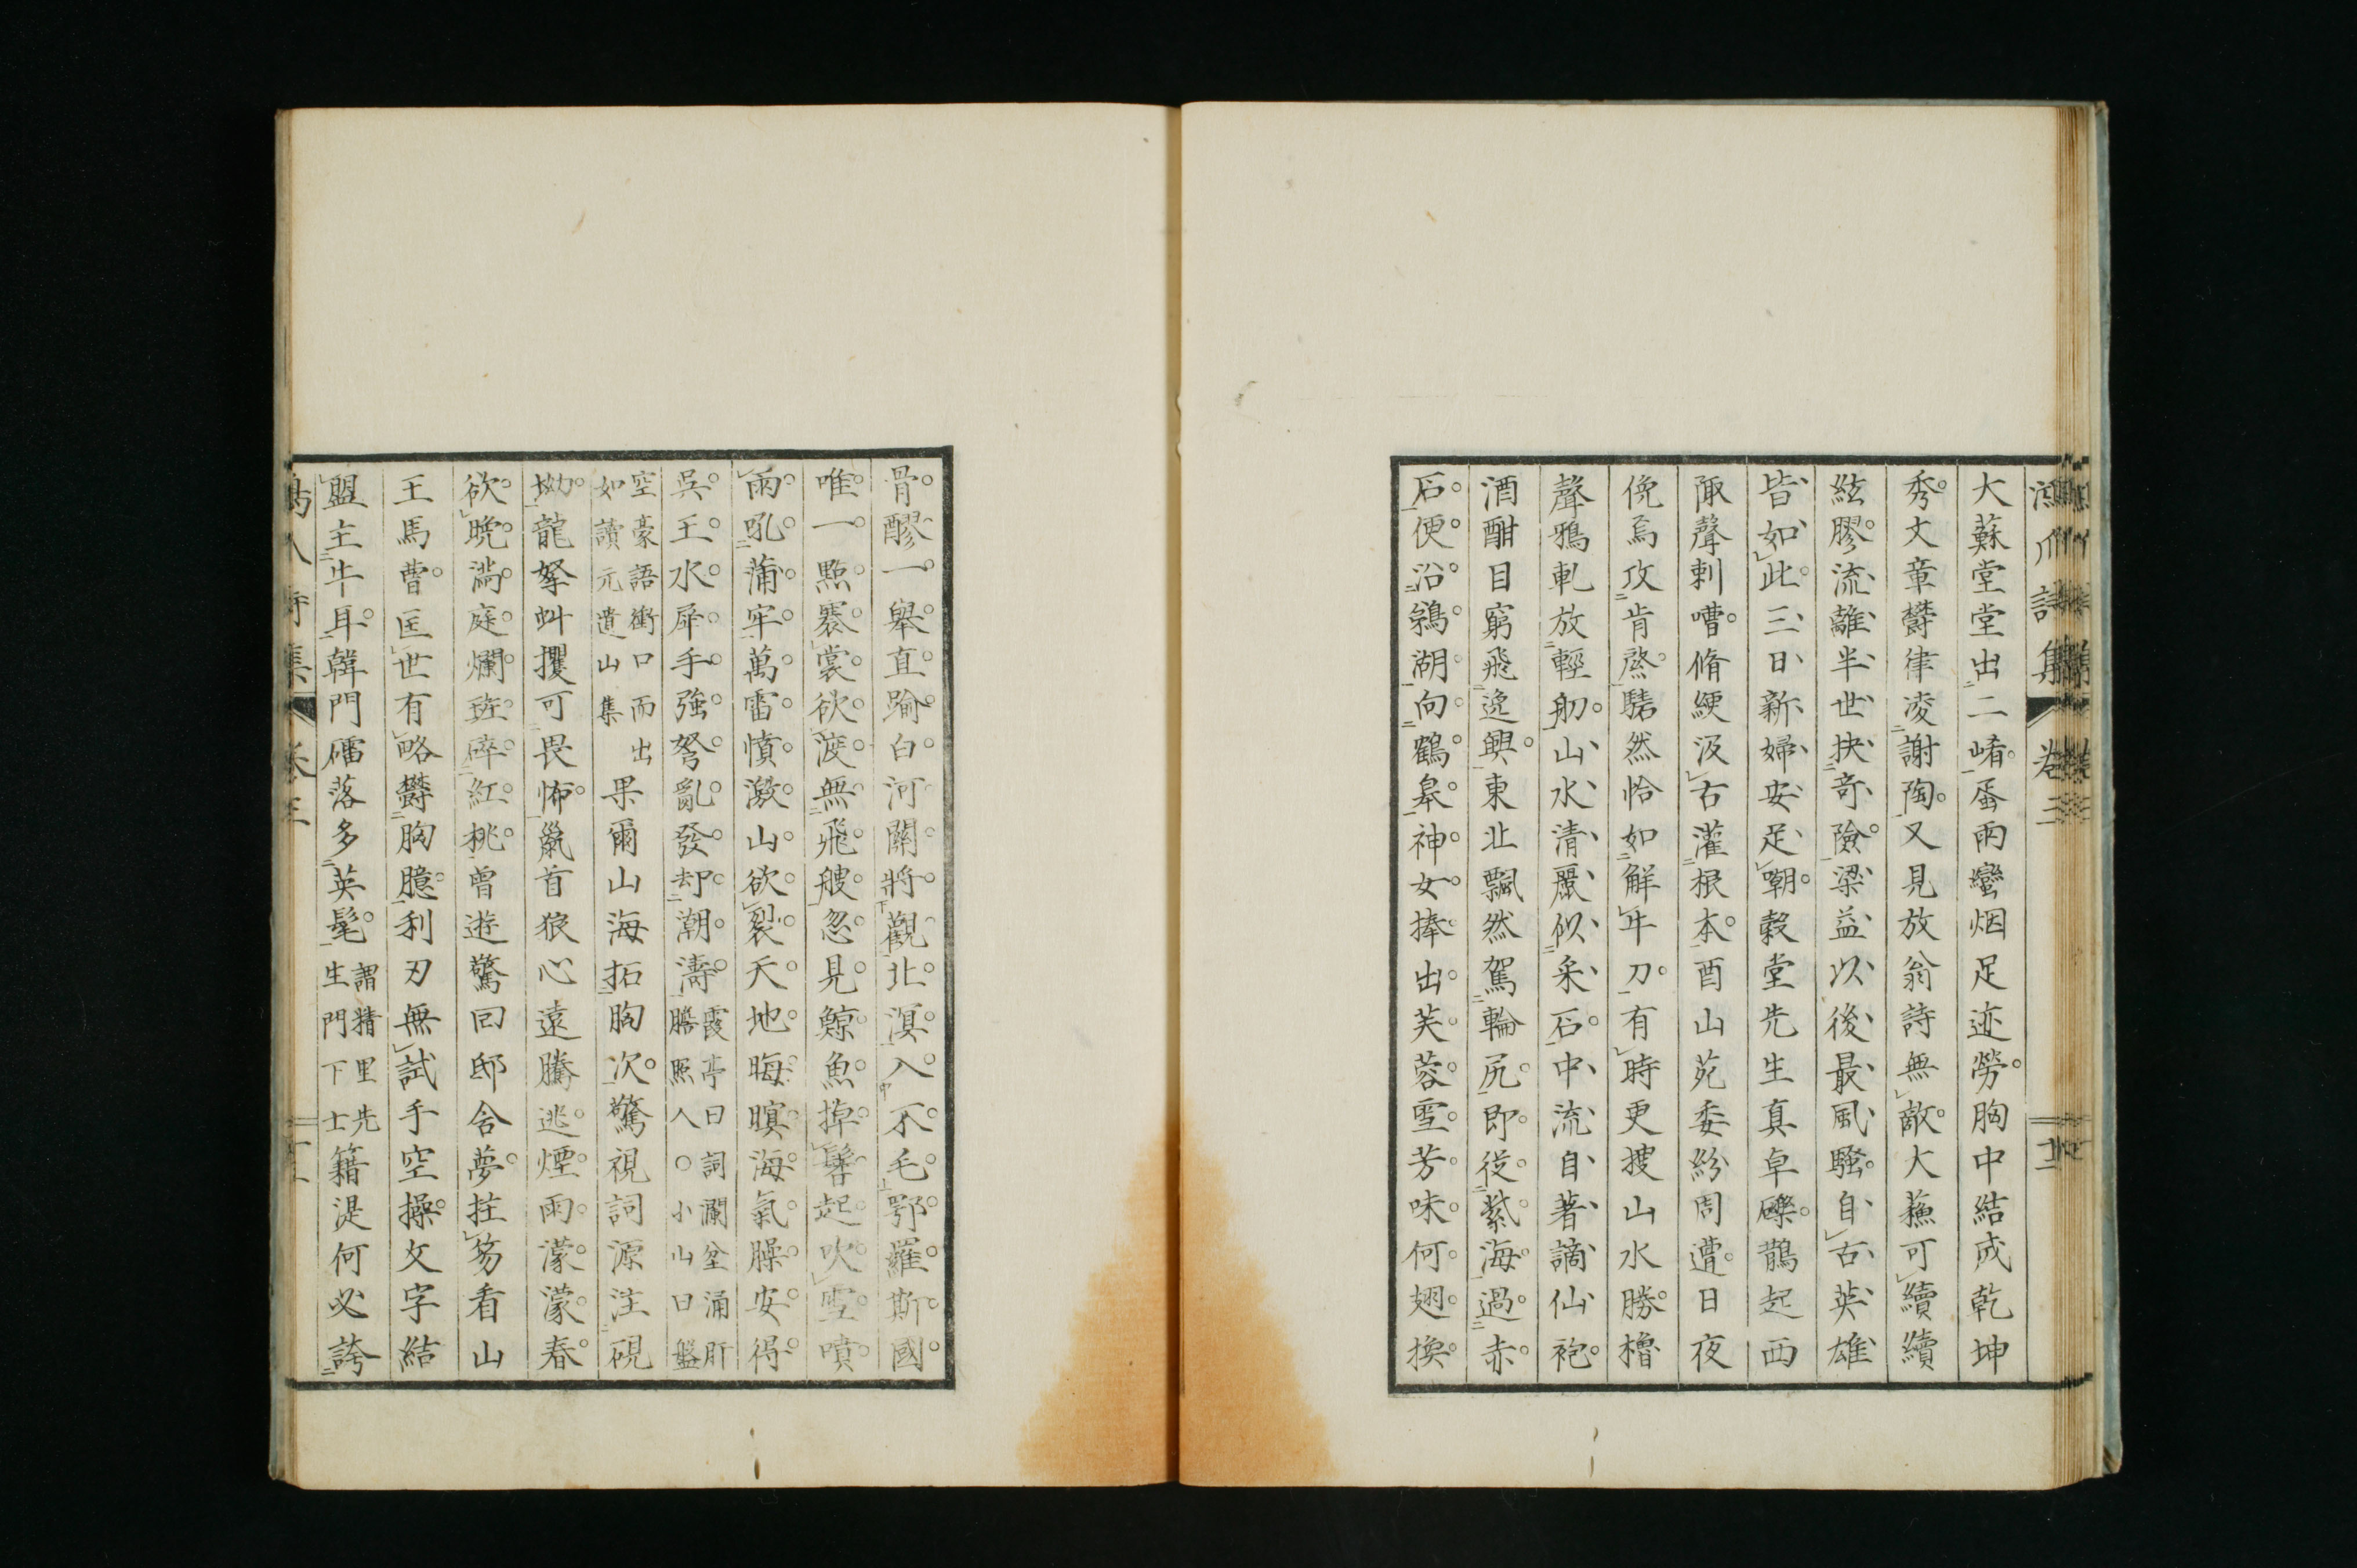 大蘇堂堂出二崤蛋雨蠻烟足迹勞胸中結成乾坤
秀文章欝律凌謝陶又見放翁詩無敵大蘓可續續
絃膠流離半世抉奇險梁益以後最風騷自古英雄
皆如此三日新婦安足嘲穀堂先生真卓礫鵲起西
陬聲剌嘈脩綆汲古灌根本酉山苑委紛周遭日夜
俛焉攻肯綮騞然恰如解牛刀有時更搜山水勝櫓
聲鴉軋放輕舠山水清麗似采石中流自著謫仙袍
酒酣目窮飛逸興東北飄然駕輪尻即從紫海過赤
石便沿鵷湖向鶴皋神女捧出芙蓉雪芳味何翅換
骨醪一舉直踰白河關將觀北溟入不毛鄂羅斯國
唯一點褰裳欲渡無飛艘忽見鯨魚掉鬐起吹雪噴
雨吼蒲牢萬雷憤激山欲裂天地晦暝海氣臊安得
吳王水犀手強弩亂發却潮濤霞亭曰詞瀾坌涌肝膽照人○小山曰盤
空豪語衝口而出如讀元遺山集果爾山海拓胸次驚視詞源注硯
坳龍拏虯攫可畏怖鼠首狼心遠騰逃煙雨濛濛春
欲晩滿庭爛斑碎紅桃曾遊驚回邸舍夢拄笏看山
王馬曹匡世有略欝胸臆利刃無試手空操文字結
盟主牛耳韓門礌落多英髦謂精里先生門下士籍湜何必誇